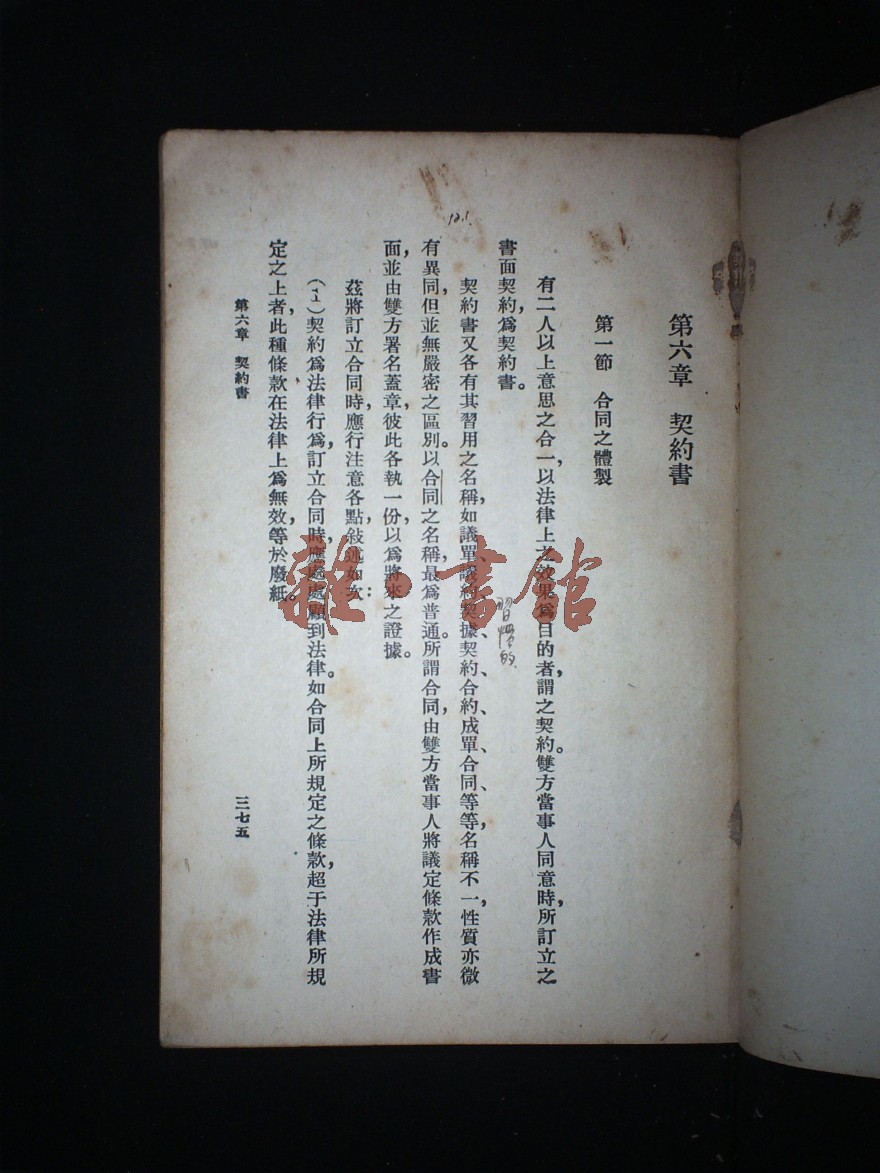 第六章　契約書
第一節　合同之體製
有二人以上意思之合一，以法律上之效果爲目的者，謂之契約。雙方當事人同意時，所訂立之
書面契約，爲契約書。
契約書又各有其習用之名稱，如議單、議約、契據、契約、合約、成單、合同等等，名稱不一，性質亦微
有異同，但並無嚴密之區別。以合同之名稱，最爲普通。所謂合同，由雙方當事人將議定條款，作成書
面，並由雙方署名蓋章，彼此各執一份，以爲將來之證據。
茲將訂立合同時，應行注意各點，敍述如次：
（1）契約爲法律行爲，訂立合同時，應處處顧到法律。如合同上所規定之條款，超于法律所規
定之上者，此種條款，在法律上爲無效，等於廢紙。
第六章　契約書
三七五
12.1.
習慣的
雜·書館